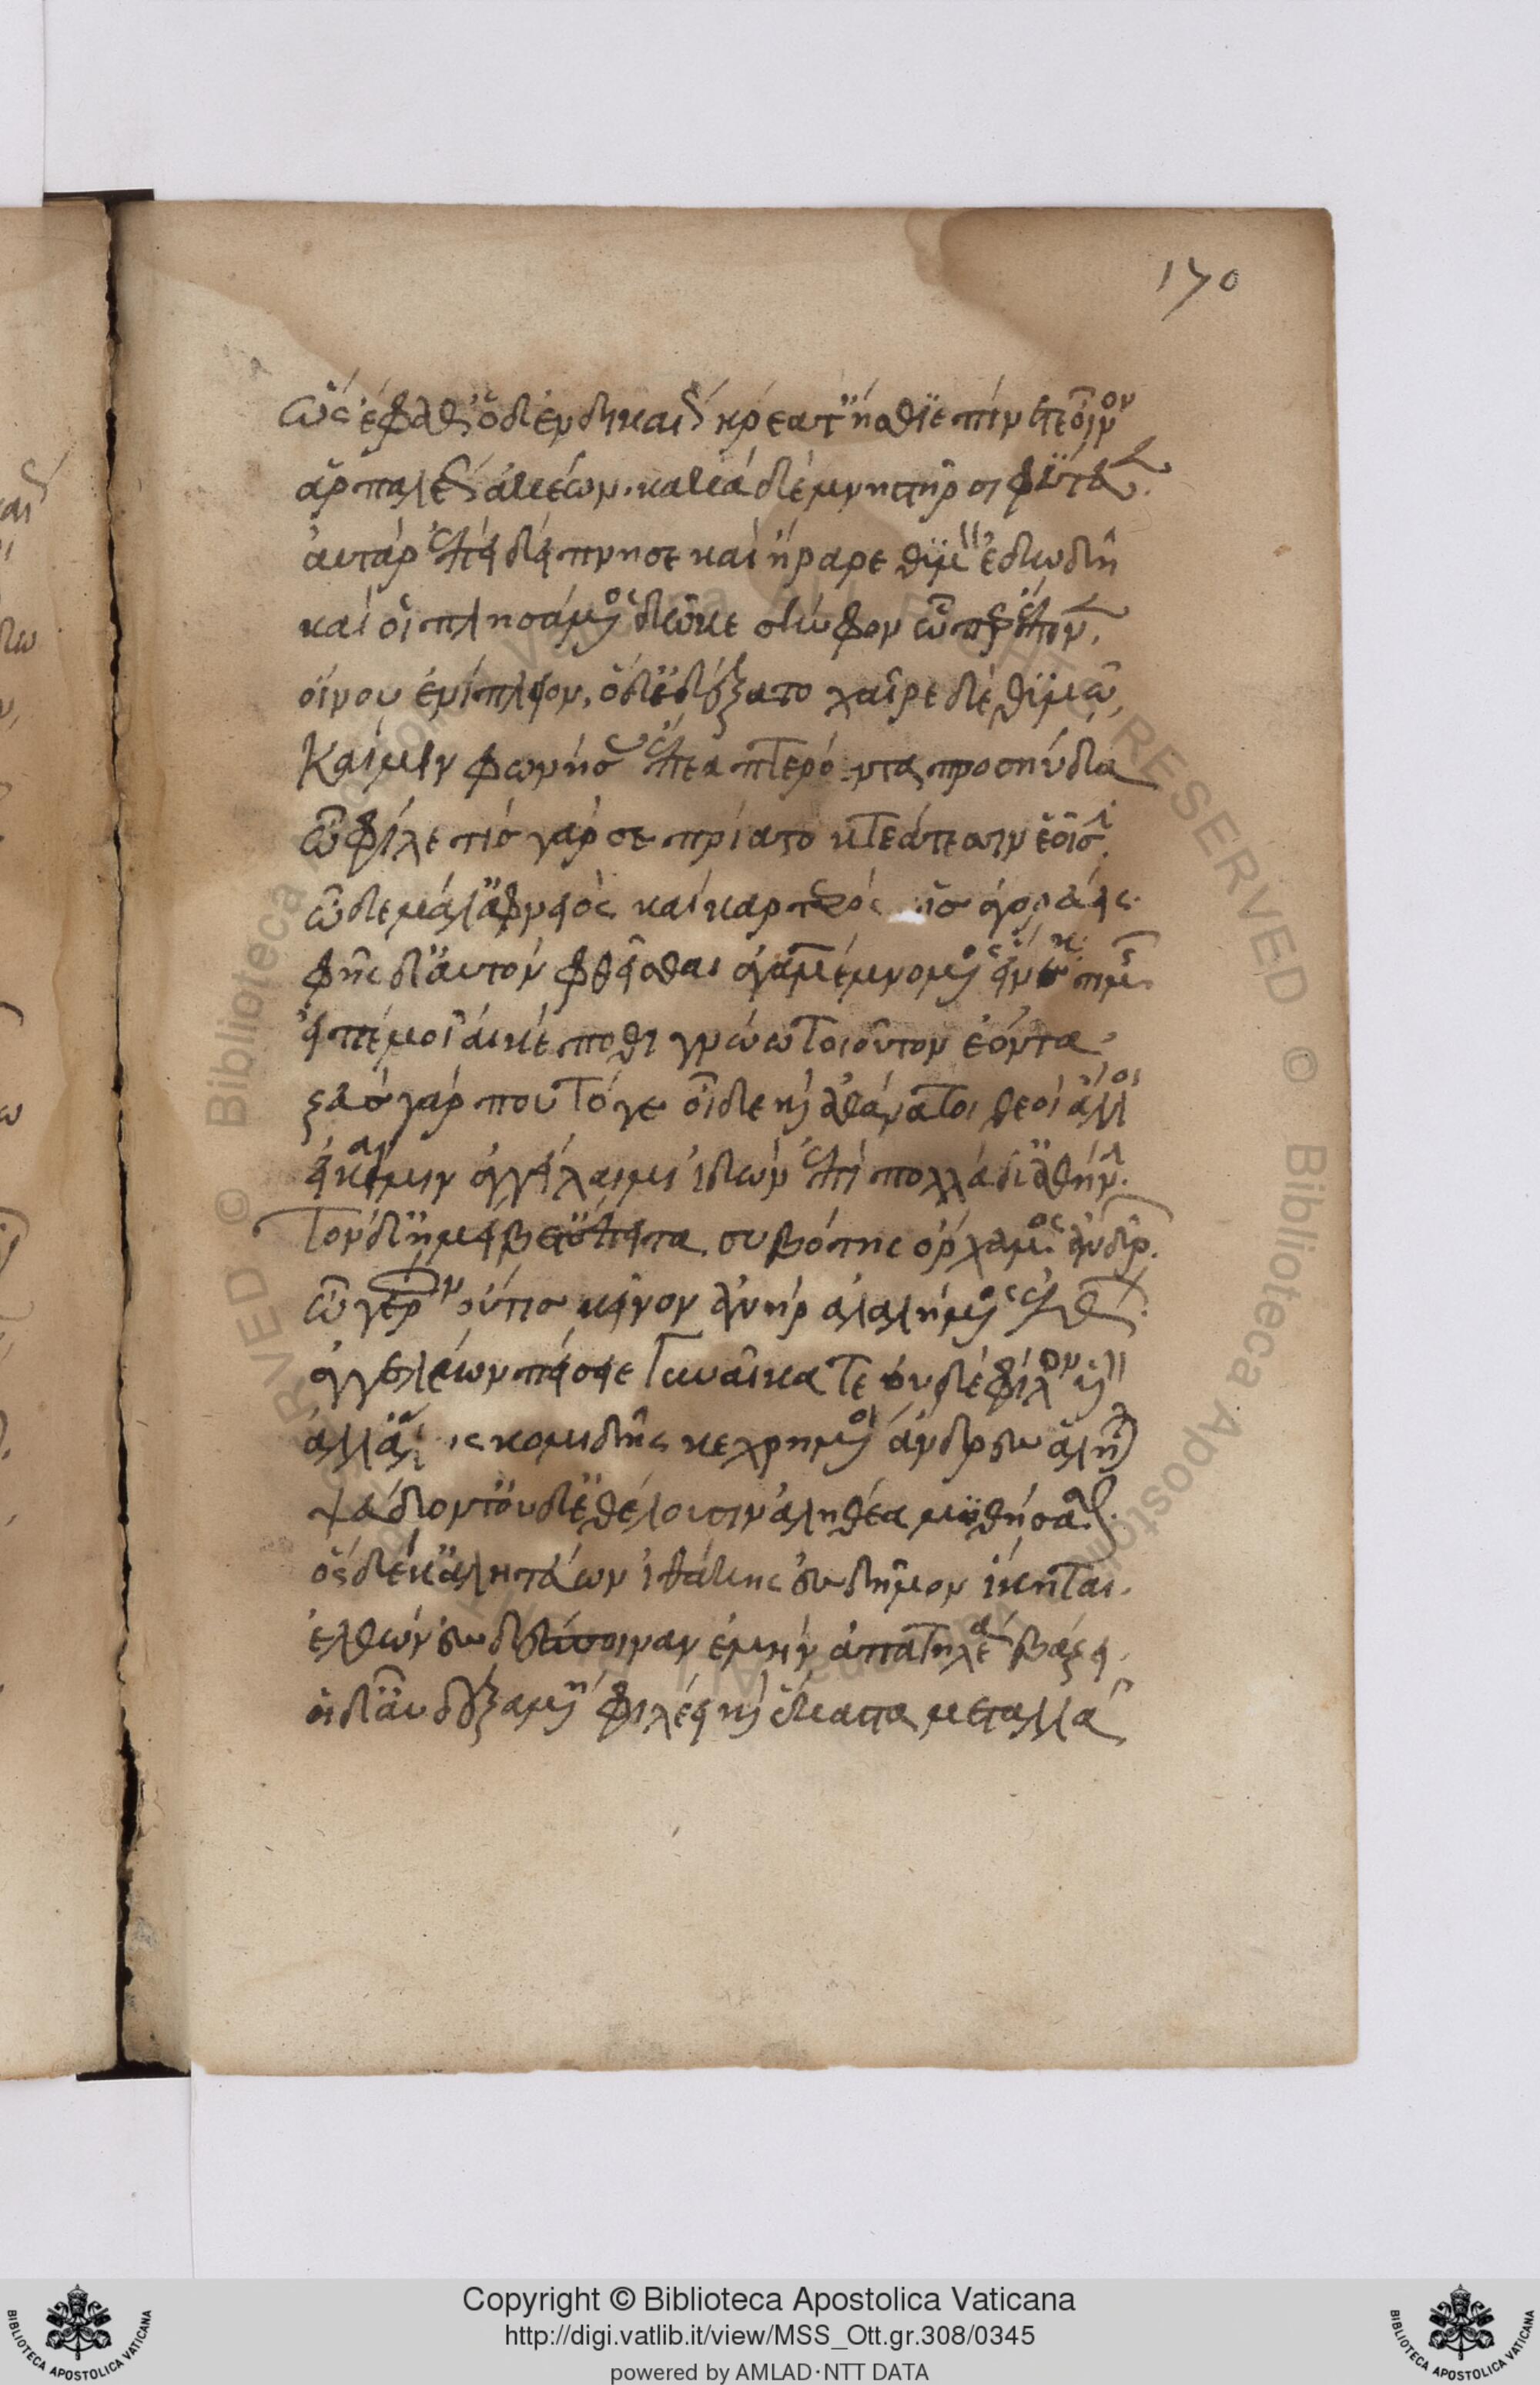 170
ὣς ἔφαθ' ὁ δ' ἐνδυκαέως κρέα τ' ἤσθιε πῖνέ τε οἶνον
ἁρπαλέως ἀκέων. κακὰ δὲ μνηστῆρσι φύτευεν.
αὐτὰρ ἐπεὶ δείπνησε καὶ ἤραρε θυμὸν ἐδωδῆ
καί οἱ πλησάμενος δῶκε σκύφον ὧπερ ἔπινεν.
οἴνου ἐνίπλειον, ὁ δ' ἐδέξατο χαῖρε δὲ θυμῶ,
καί μιν φωνήσας ἔπεα πτερόεντα προσηύδα
ὦ φίλε τίς γάρ σε πρίατο κτεάτεσσιν ἑοῖσιν.
ὧδε μάλ' ἀφνειὸς καὶ καρτερός ὡς ἀγορεύεις.
φῂς δ' αὐτὸν φθεῖσθαι ἀγαμέμνονος εἵνεκα τιμῆς.
εἰπέ μοι αἴ κέ ποθι γνώω τοιοῦτον ἐόντα.
ζεὺς γάρ που τόγε οἶδε καὶ ἀθάνατοι θεοὶ ἄλλοι
εἴ κέ μιν ἀγγείλαιμι ἰδών ἐπὶ πολλὰ δ' ἀλήθην.
τὸν δ' ἠμείβετ' ἔπειτα συβώτης ὄρχαμος ἀνδρῶν.
ὦ γέρον οὔτις κεῖνον ἀνὴρ ἀλαλήμενος ἐλθών.
ἀγγέλλων πείσειε γυναῖκά τε καὶ φίλον υἱόν
ἀλλ' ἄλλως κομιδῆς κεχρημένοι ἄνδρες ἀλῆται
ψεύδοντ' οὐδ' ἐθέλουσιν ἀληθέα μυθήσασθαι.
ὃς δέ κ' ἀλητεύων ἰθάκης ἐς δῆμον ἵκηται.
ἐλθὼν ἐς δέσποιναν ἐμὴν ἀπατήλια βάζει.
ἡ δ' εὖ δεξαμένη φιλέει καὶ ἕκαστα μεταλλᾶ
Copyright © Biblioteca Apostolica Vaticana
http://digi.vatlib.it/view/MSS_Ott.gr.308/0345
powered by AMLAD·NTT DATA